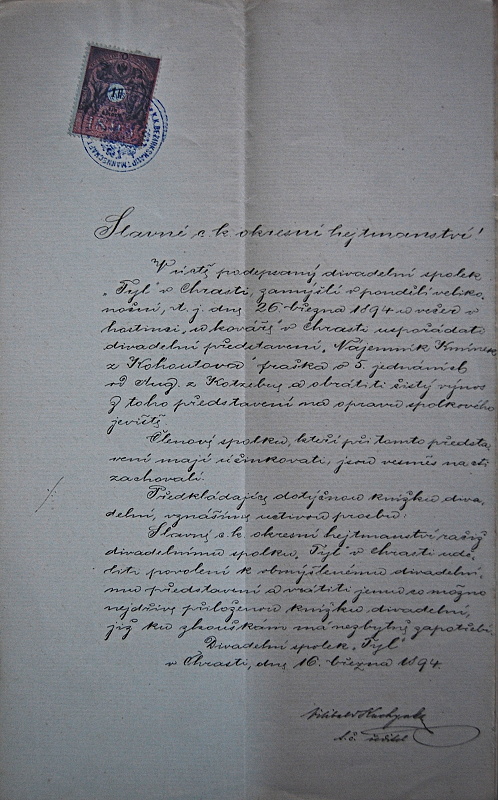 K.K. BEZIRKSHAUPTMANNSCHAFT
Slavné c. k. okresní hejtmanství!
V úctě podepsaný divadelní spolek
„Tyl" v Chrasti, zamýšlí v pondělí veliko-
noční, t. j. dne 26. března 1894 v
hostinci, „u kovářů" v Chrasti uspořádati
divadelní představení „Nájemník Kmínek
z Kohoutova" fraška v 5. jednáních
od Aug. z Kotzebue a obrátiti čistý výnos
z toho představení na opravu spolkového
jeviště.
Členové spolku, kteří při tomto předsta-
vení mají účinkovati, jsou vesměs na cti
zachovalí.
Předkládajíce dotyčnou knížku diva-
delní, vznášíme uctivou prosbu:
Slavné c. k. okresní hejtmanství račiž
divadelnímu spolku „Tyl" v Chrasti udě-
liti povolení k obmýšlenému divadelní-
mu představení a vrátiti jemu co možno
nejdříve přiloženou knížku divadelní,
již ku zkouškám má nezbytně zapotřebí.
Divadelní spolek „Tyl"
v Chrasti, dne 16. března 1894.
t. č. ředitel